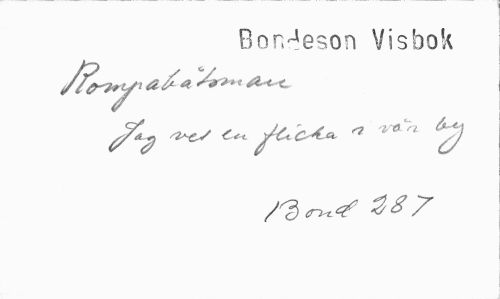 Bondeson Visbok
Rompabåtsman
Jag vet en flicka i vår by
Bond 287